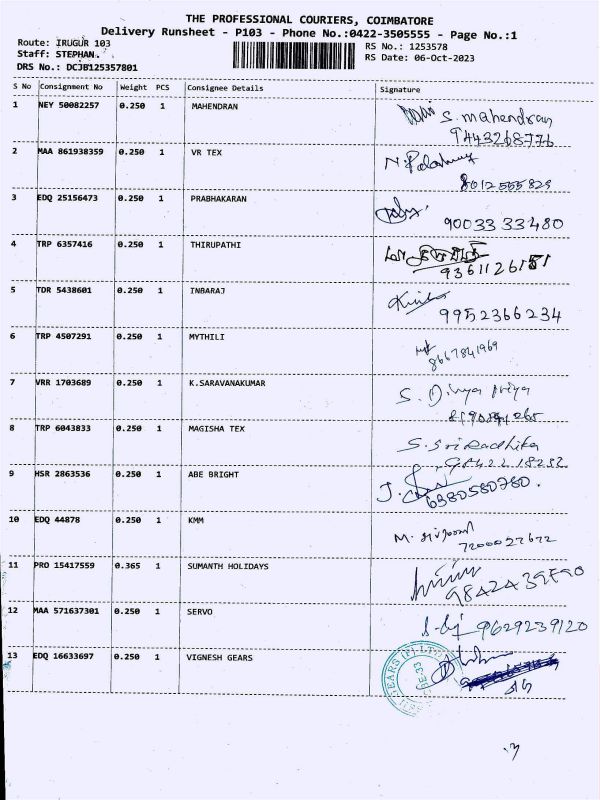 THE PROFESSIONAL COURIERS, COIMBATORE
Delivery Runsheet - P103 - Phone No.:0422-3505555 - Page No.:1
Route: IRUGUR 103
Staff: STEPHAN.
DRS No.: DCJB125357801
RS No.: 1253578
RS Date: 06-Oct-2023
S No Consignment No Weight PCS Consignee Details Signature
1 NEY 50082257 0.250 1 MAHENDRAN S. Mahendran
9443268776
2 MAA 861938359 0.250 1 VR TEX
8012555829
3 EDQ 25156473 0.250 1 PRABHAKARAN
9003333480
4 TRP 6357416 0.250 1 THIRUPATHI
5 TDR 5438601 0.250 1 INBARAJ
9952366234
6 TRP 4507291 0.250 1 MYTHILI
8667841969
7 VRR 1703689 0.250 1 K.SARAVANAKUMAR S. Divya priya
8 TRP 6043833 0.250 1 MAGISHA TEX S. Sri Radhika
98422 18232
9 HSR 2863536 0.250 1 ABE BRIGHT J.
6380580780.
10 EDQ 44878 0.250 1 KMM M.
7200027672
11 PRO 15417559 0.365 1 SUMANTH HOLIDAYS
12 MAA 571637301 0.250 1 SERVO 9629239120
13 EDQ 16633697 0.250 1 VIGNESH GEARS